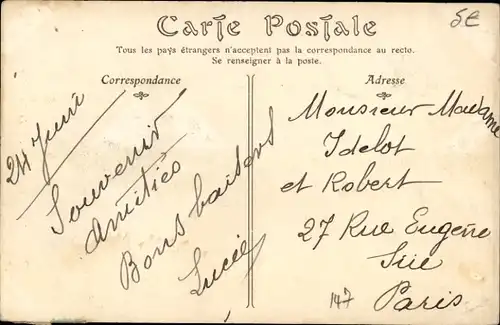 Carte Postale
5€
Tous les pays étrangers n'acceptent pas la correspondance au recto.
Se renseigner à la poste.
Correspondance
24 Juin
Souvenir
Amitiés
Bons baisers
Lucie
Adresse
Monsieur Madame
Idelot
et Robert
27 Rue Eugène
Süe
Paris
147